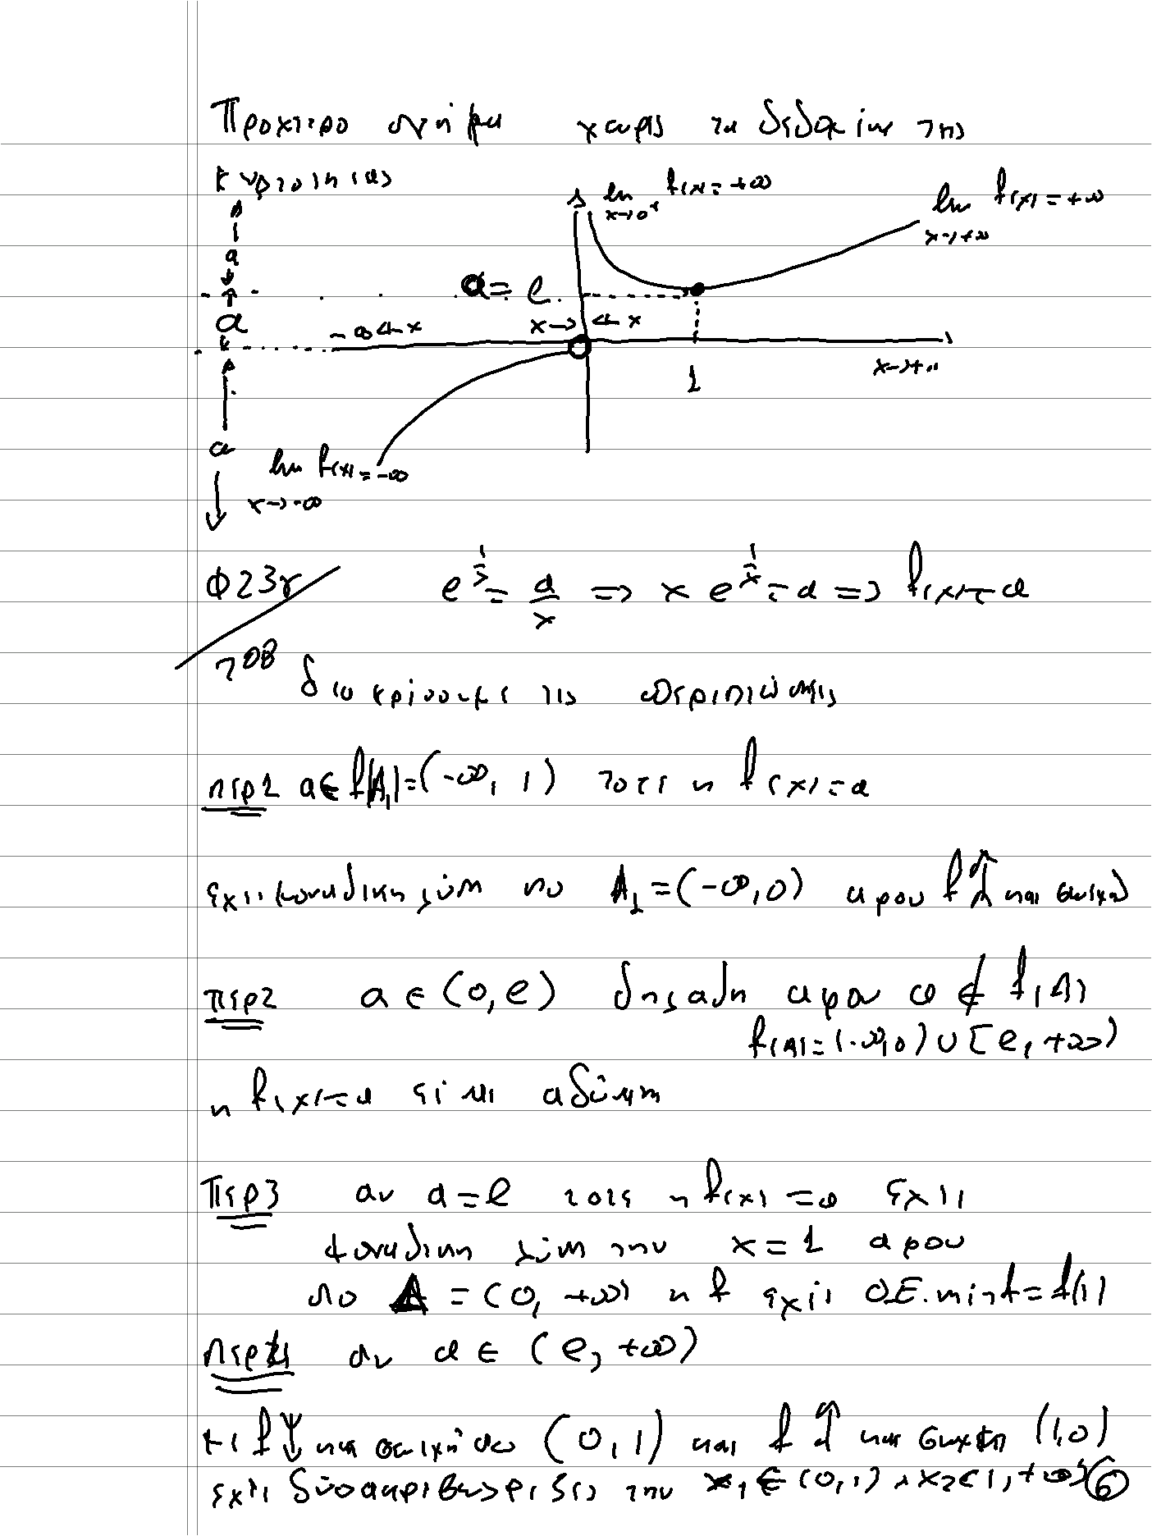 Προχειρο σχήμα χωρις τα δεδομενα της
κυρτοτητας
lim f(x)=+∞
x→0⁺
lim f(x)=+∞
x→+∞
a
a = e
a
-∞←x
x→ ←x
1
x→+∞
a
lim f(x)=-∞
x→-∞
Φ23γ
e^{1/x} = a/x ⇒ x e^{1/x} = a ⇒ f(x)=a
208
διακρίνουμε τις περιπτώσεις
περ1 a∈f(A₁)=(-∞, 1) τοτε η f(x)=a
εχει μοναδικη λύση στο A₁=(-∞,0) αφου f↑ και συνεχη
Περ2 a∈(0,e) δηλαδη αφου a∉f(A)
f(A)=(-∞,0)∪[e,+∞)
η f(x)=a είναι αδύνατη
Περ3 αν a=e τοτε η f(x)=a εχει
μοναδικη λύση την x=1 αφου
στο A=(0,+∞) η f εχει Ο.Ε. minf=f(1)
περ4 αν a∈(e,+∞)
f↓ και συνεχη στο (0,1) και f↑ και συνεχη (1,0)
εχει δύο ακριβως ριζες την x₁∈(0,1), x₂∈(1,+∞)
6